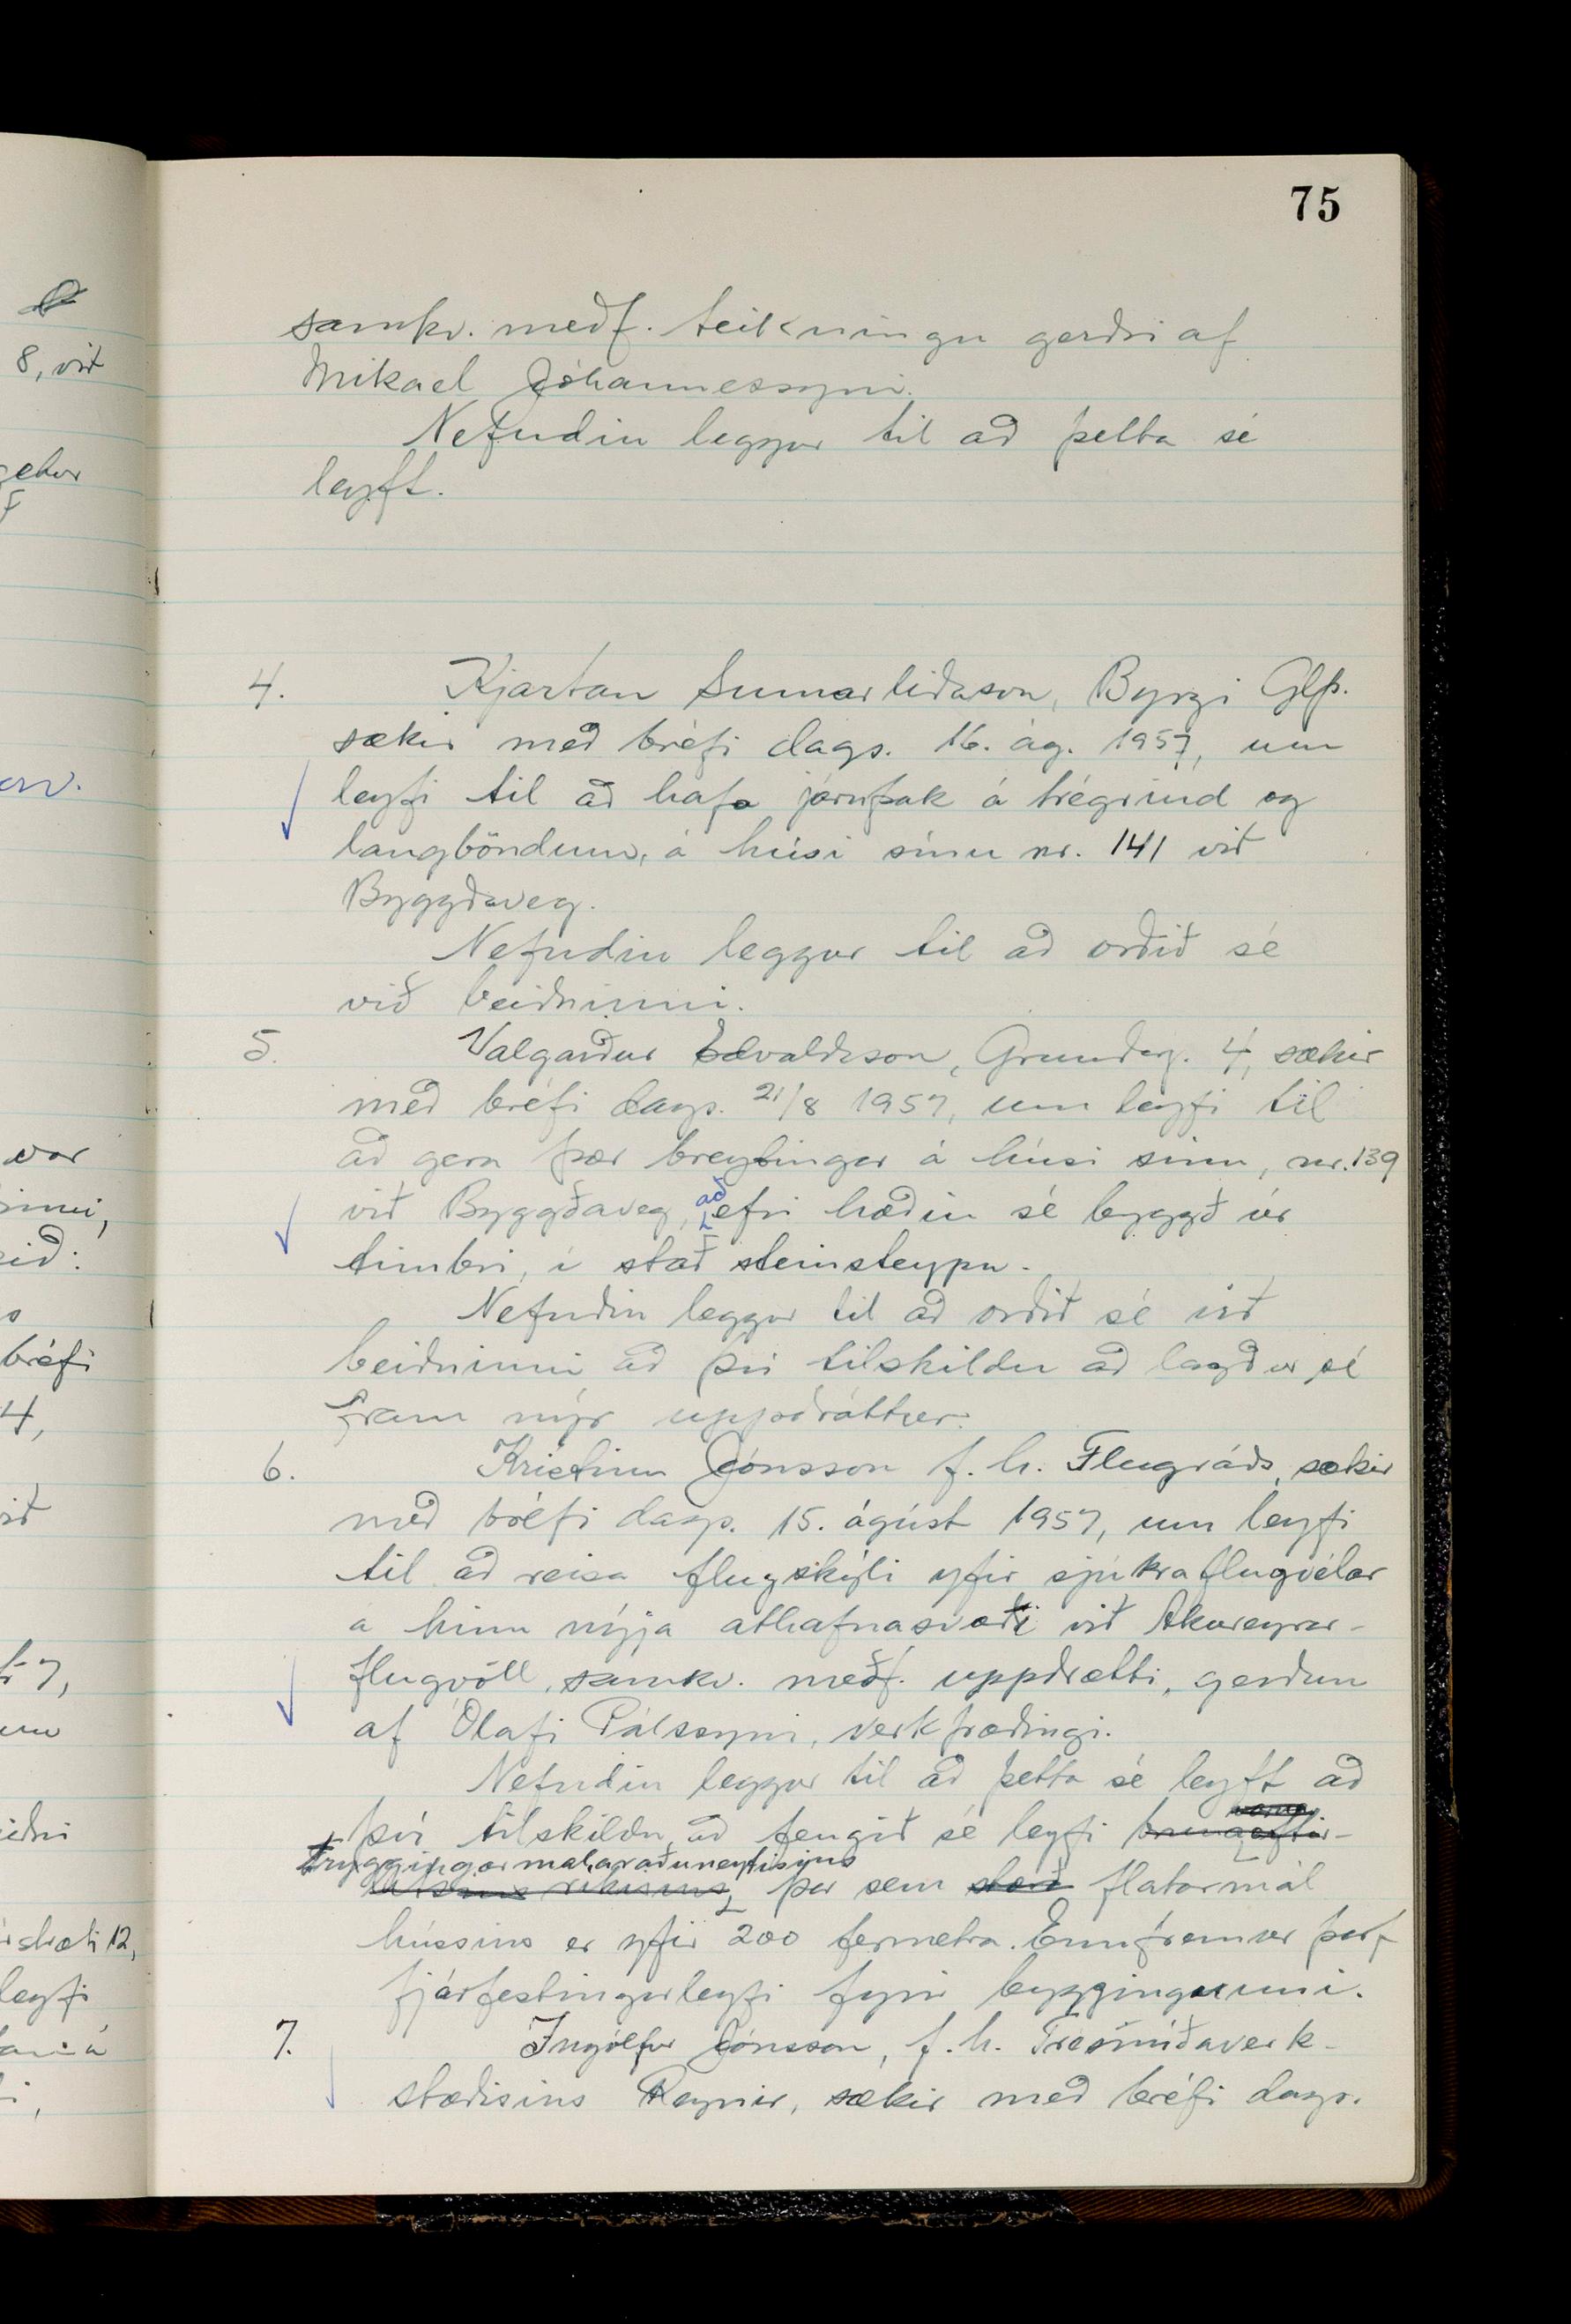 75
samkv. meðf. teikningu gerðri af
Mikael Jóhannessyni.
Nefndin leggur til að þetta sé
leyft.
4. Kjartan Sumarliðason, Byrgi Glþ.
sækir með bréfi dags. 16. ág. 1957, um
leyfi til að hafa járnþak á trégrind og
langböndum, á húsi sínu nr. 141 við
Byggðaveg.
Nefndin leggur til að orðið sé
við beiðninni.
5. Valgarður Edvaldsson, Grundarg. 4, sækir
með bréfi dags. 21/8 1957, um leyfi til
að gera þær breytingar á húsi sínu, nr. 139
við Byggðaveg, að efri hæðin sé byggð úr
timbri, í stað steinsteypu.
Nefndin leggur til að orðið sé við
beiðninni að því tilskildu að lagður sé
fram nýr uppdráttur.
6. Kristinn Jónsson f. h. Flugráðs, sækir
með bréfi dags. 15. ágúst 1957, um leyfi
til að reisa flugskýli yfir sjúkraflugvélar
a hinu nýja athafnasvæði við Akureyrar-
flugvöll, samkv. meðf. uppdrætti, gerðum
af Ólafi Pálssyni, verkfræðingi.
Nefndin leggur til að þetta sé leyft að
því tilskildu, að fengið sé leyfi
tryggingarmálaraðuneytisins
þar sem stærð flatarmál
hússins er yfir 200 fermetra. Ennfremur þarf
fjárfestingarleyfi fyrir byggingunni.
7. Ingólfur Jónsson, f. h. Tresmíðaverk-
stæðisins Reynir, sækir með bréfi dags.